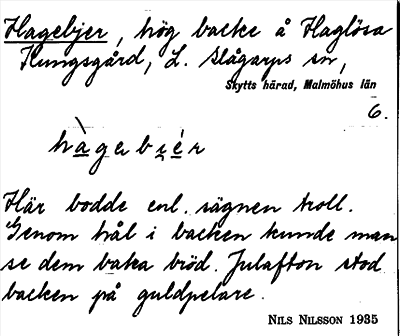 Hagebjer, hög backe å Haglösa
Kungsgård, L. Slågarps sn,
Skytts härad, Malmöhus län
6.
hàgabjér
Här bodde enl. sägnen troll.
Genom hål i backen kunde man
se dem baka bröd. Julafton stod
backen på guldpelare.
NILS NILSSON 1935